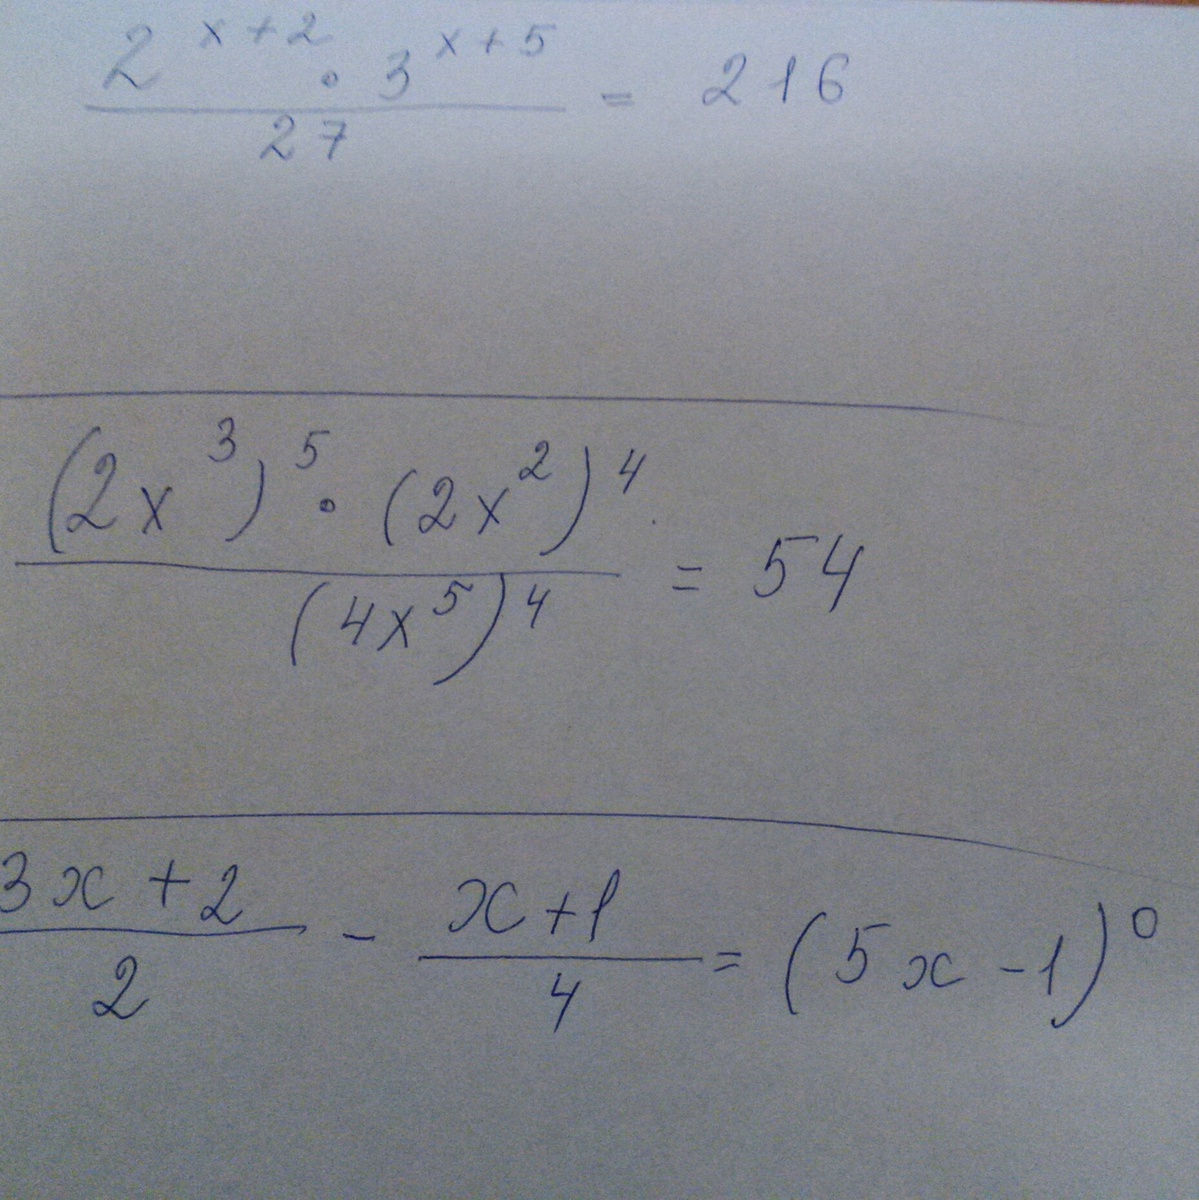 2^{x+2} · 3^{x+5} / 27 = 216
(2x^3)^5 · (2x^2)^4 / (4x^5)^4 = 54
3x+2 / 2 - x+1 / 4 = (5x-1)^0